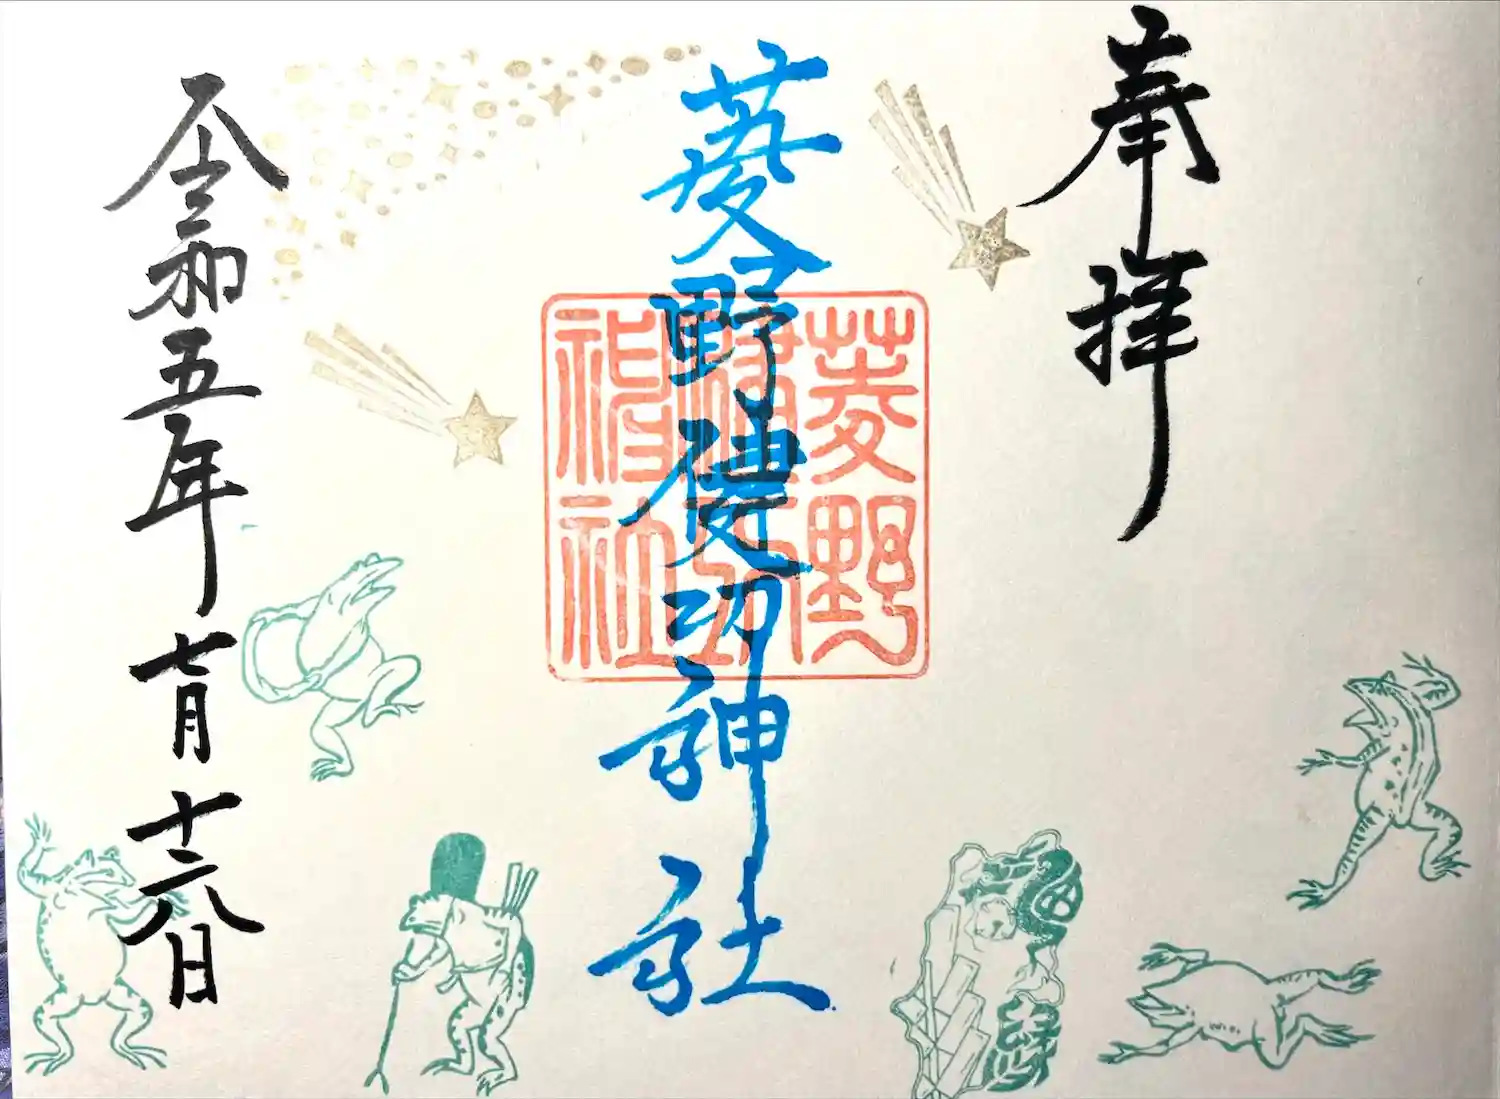 奉拝
菱野健功神社
菱野
健功
神社
令和五年七月十六日